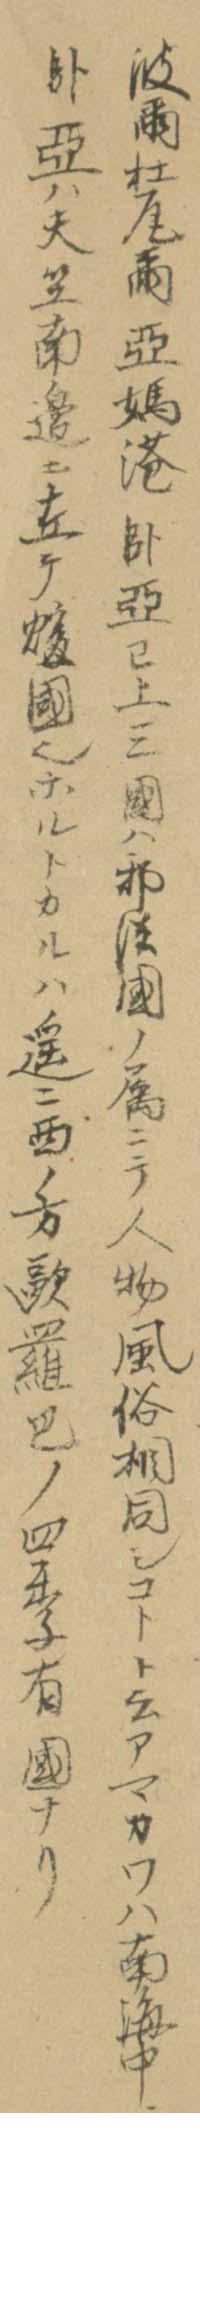 波爾杜瓦爾亞媽港卧亞已上三國ハ邪法國ノ属ニテ人物風俗相同シコトト云アマカワハ南海中ニ
卧亞ハ天竺南邊ニ在テ煖國也ホルトカルハ遥ニ西ノ方歐羅巴ノ四季有國ナリ